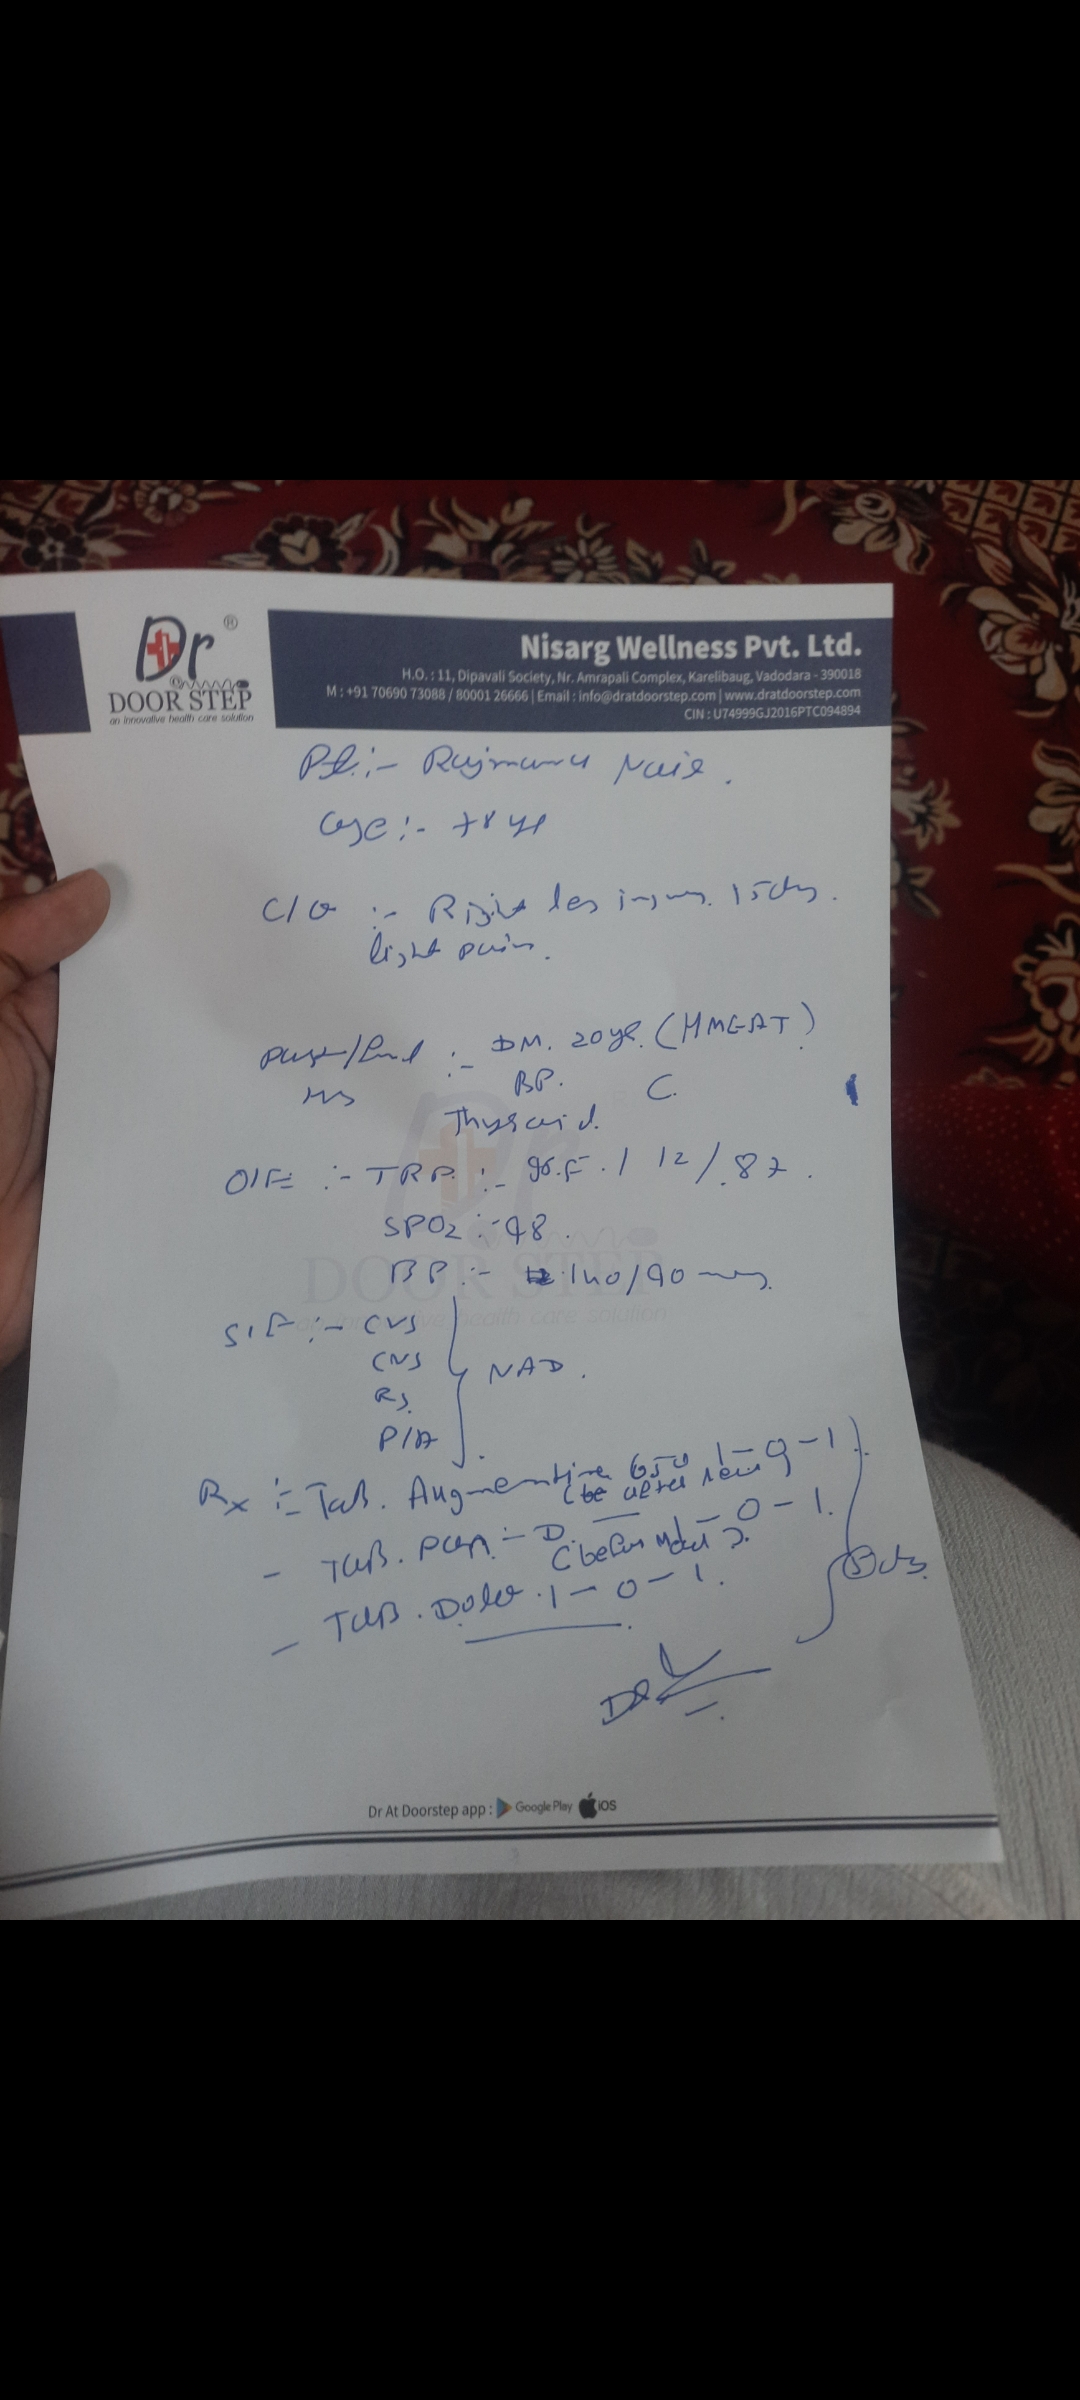 Dr ®
DOOR STEP
an innovative health care solution
Nisarg Wellness Pvt. Ltd.
H.O. : 11, Dipavali Society, Nr. Amrapali Complex, Karelibaug, Vadodara - 390018
M : +91 70690 73088 / 80001 26666 | Email : info@dratdoorstep.com | www.dratdoorstep.com
CIN : U74999GJ2016PTC094894
Pt :-
Age :- 78 yr
C/O :- Right leg injury. 15dys.
light pain.
Past/ :- DM. 20yr.
BP.
Thyroid.
O/E :- TRP :- 12/.87.
SPO2 :- 98.
BP :- 140/90
S/E :- CVS
CNS
RS.
P/A
NAD.
Rx :- Tab. Augmentine 650 1-0-1
(after
- TAB. Pan - D. 1-0-1.
(before
- TAB. Dolo. 1-0-1.
Dr At Doorstep app : Google Play iOS
DOOR STEP
an innovative health care solution